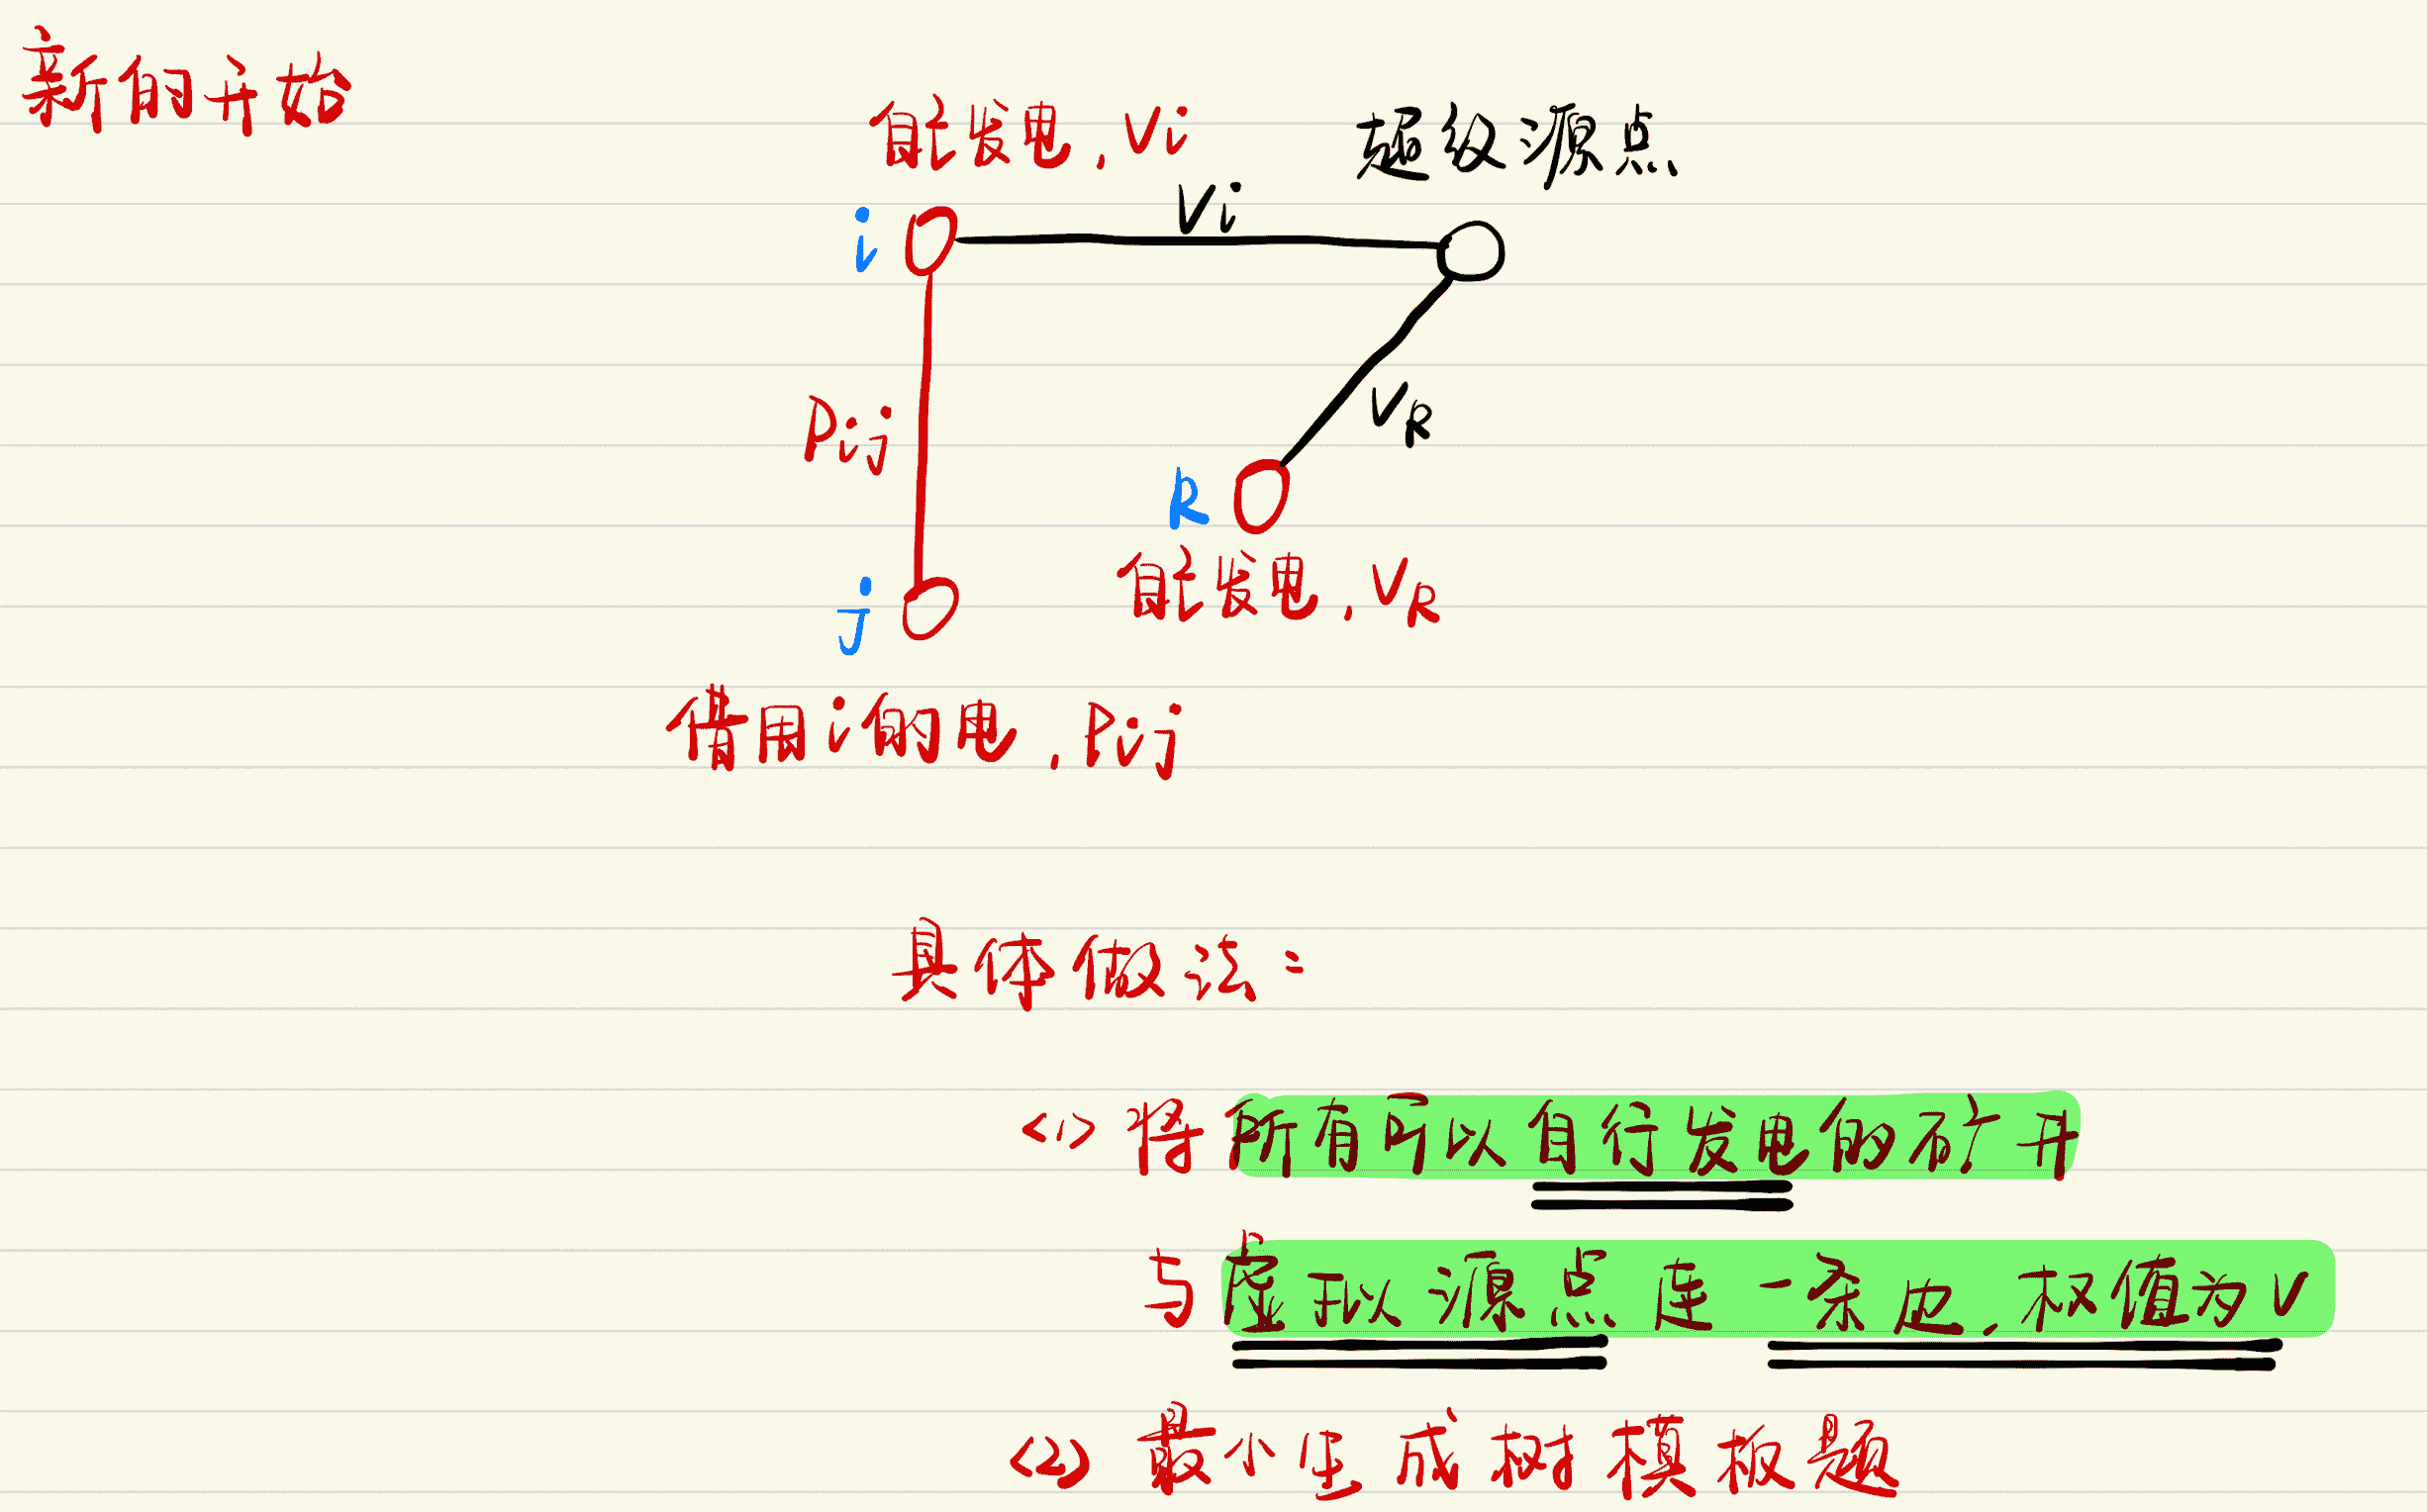 新的开始
能发电,Vi
超级源点
Vi
i
Pij
VR
k
j
能发电,VR
借用i的电,Pij
具体做法:
<1> 将所有可以自行发电的矿井
与虚拟源点连一条边,权值为V
(2) 最小生成树模板题